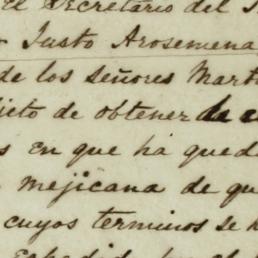 El Secretario del
Justo Arosemena
de los Señores Mart
jeto de obtener la
s en que ha queda
mejicana de qu
cuyos terminos se h